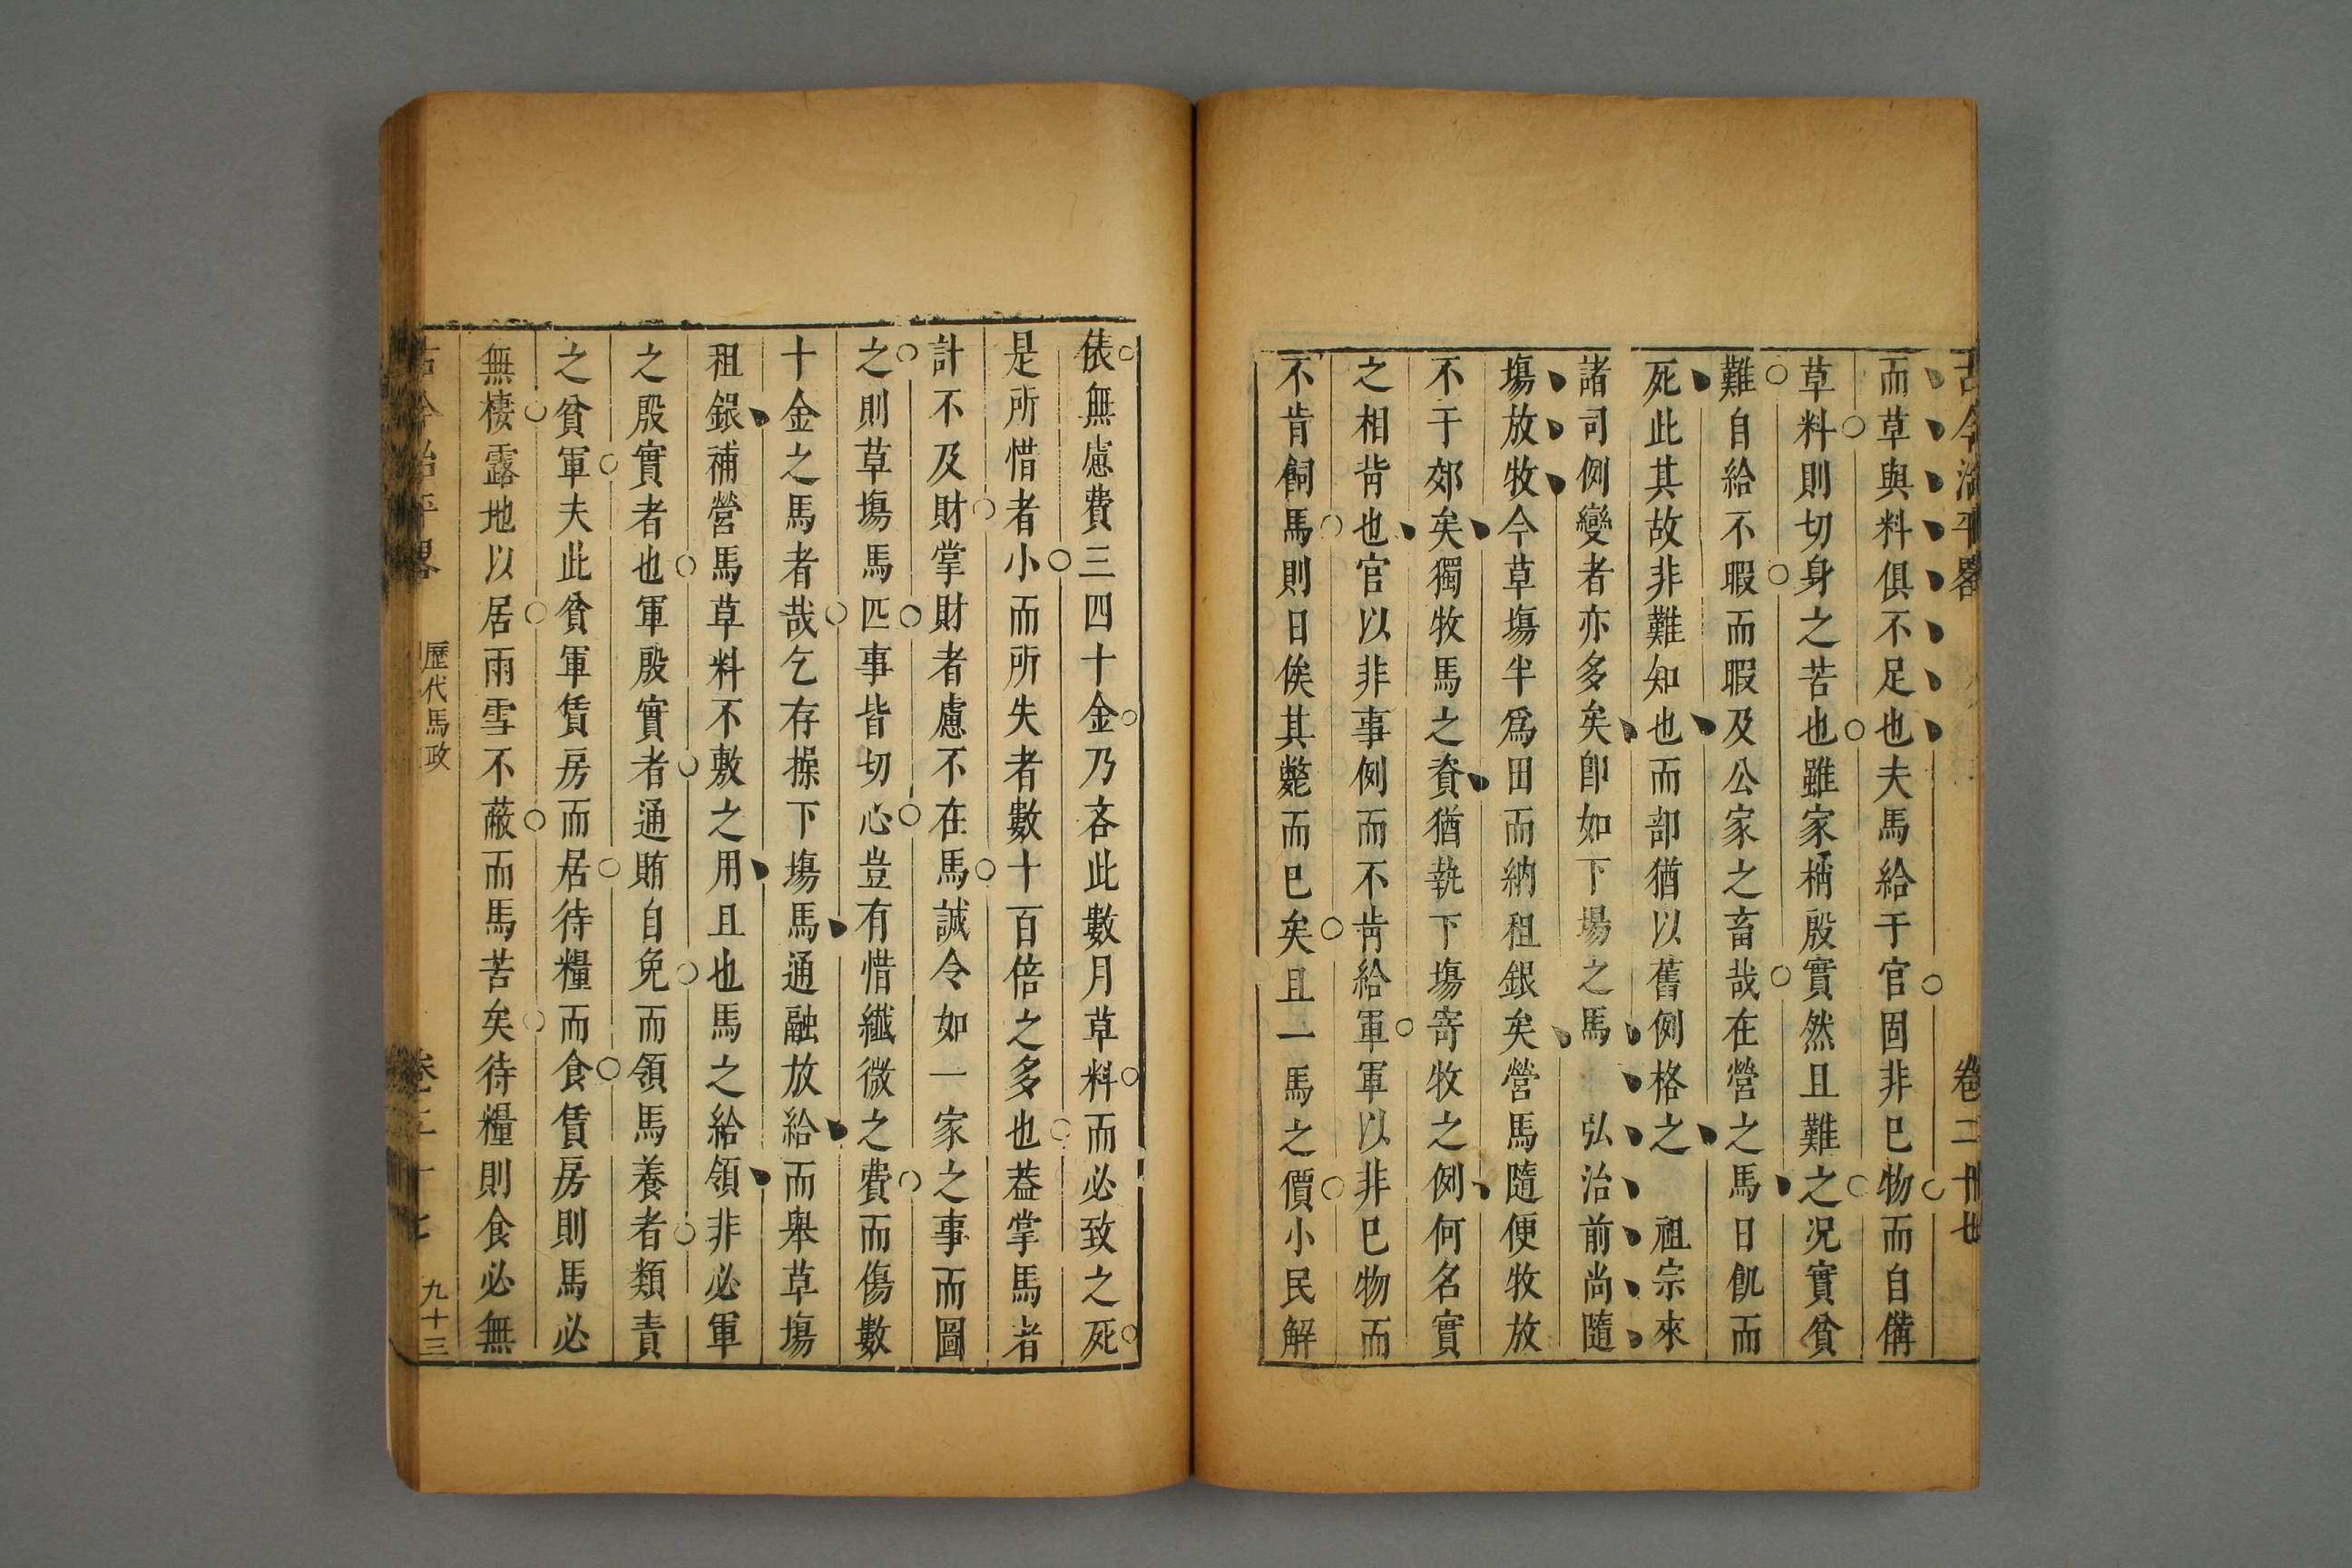 古今治平畧
卷二十七
而草與料俱不足也夫馬給于官固非巳物而自備
草料則切身之苦也雖家稱殷實然且難之况實貧
難自給不暇而暇及公家之畜哉在營之馬日飢而
死此其故非難知也而部猶以舊例格之 祖宗來
諸司例變者亦多矣卽如下塲之馬 弘治前尚隨
塲放牧今草塲半爲田而納租銀矣營馬隨便牧放
不于郊矣獨牧馬之資猶執下塲寄牧之例何名實
之相背也官以非事例而不肯給軍軍以非巳物而
不肯飼馬則日俟其斃而巳矣且一馬之價小民解
俵無慮費三四十金乃吝此數月草料而必致之死
是所惜者小而所失者數十百倍之多也葢掌馬者
計不及財掌財者慮不在馬誠令如一家之事而圖
之則草塲馬匹事皆切心豈有惜纖微之費而傷數
十金之馬者哉乞存操下塲馬通融放給而舉草塲
租銀補營馬草料不敷之用且也馬之給領非必軍
之殷實者也軍殷實者通賄自免而領馬養者類責
之貧軍夫此貧軍賃房而居待糧而食賃房則馬必
無棲露地以居雨雪不蔽而馬苦矣待糧則食必無
古今治平畧
歷代馬政
卷二十七
九十三